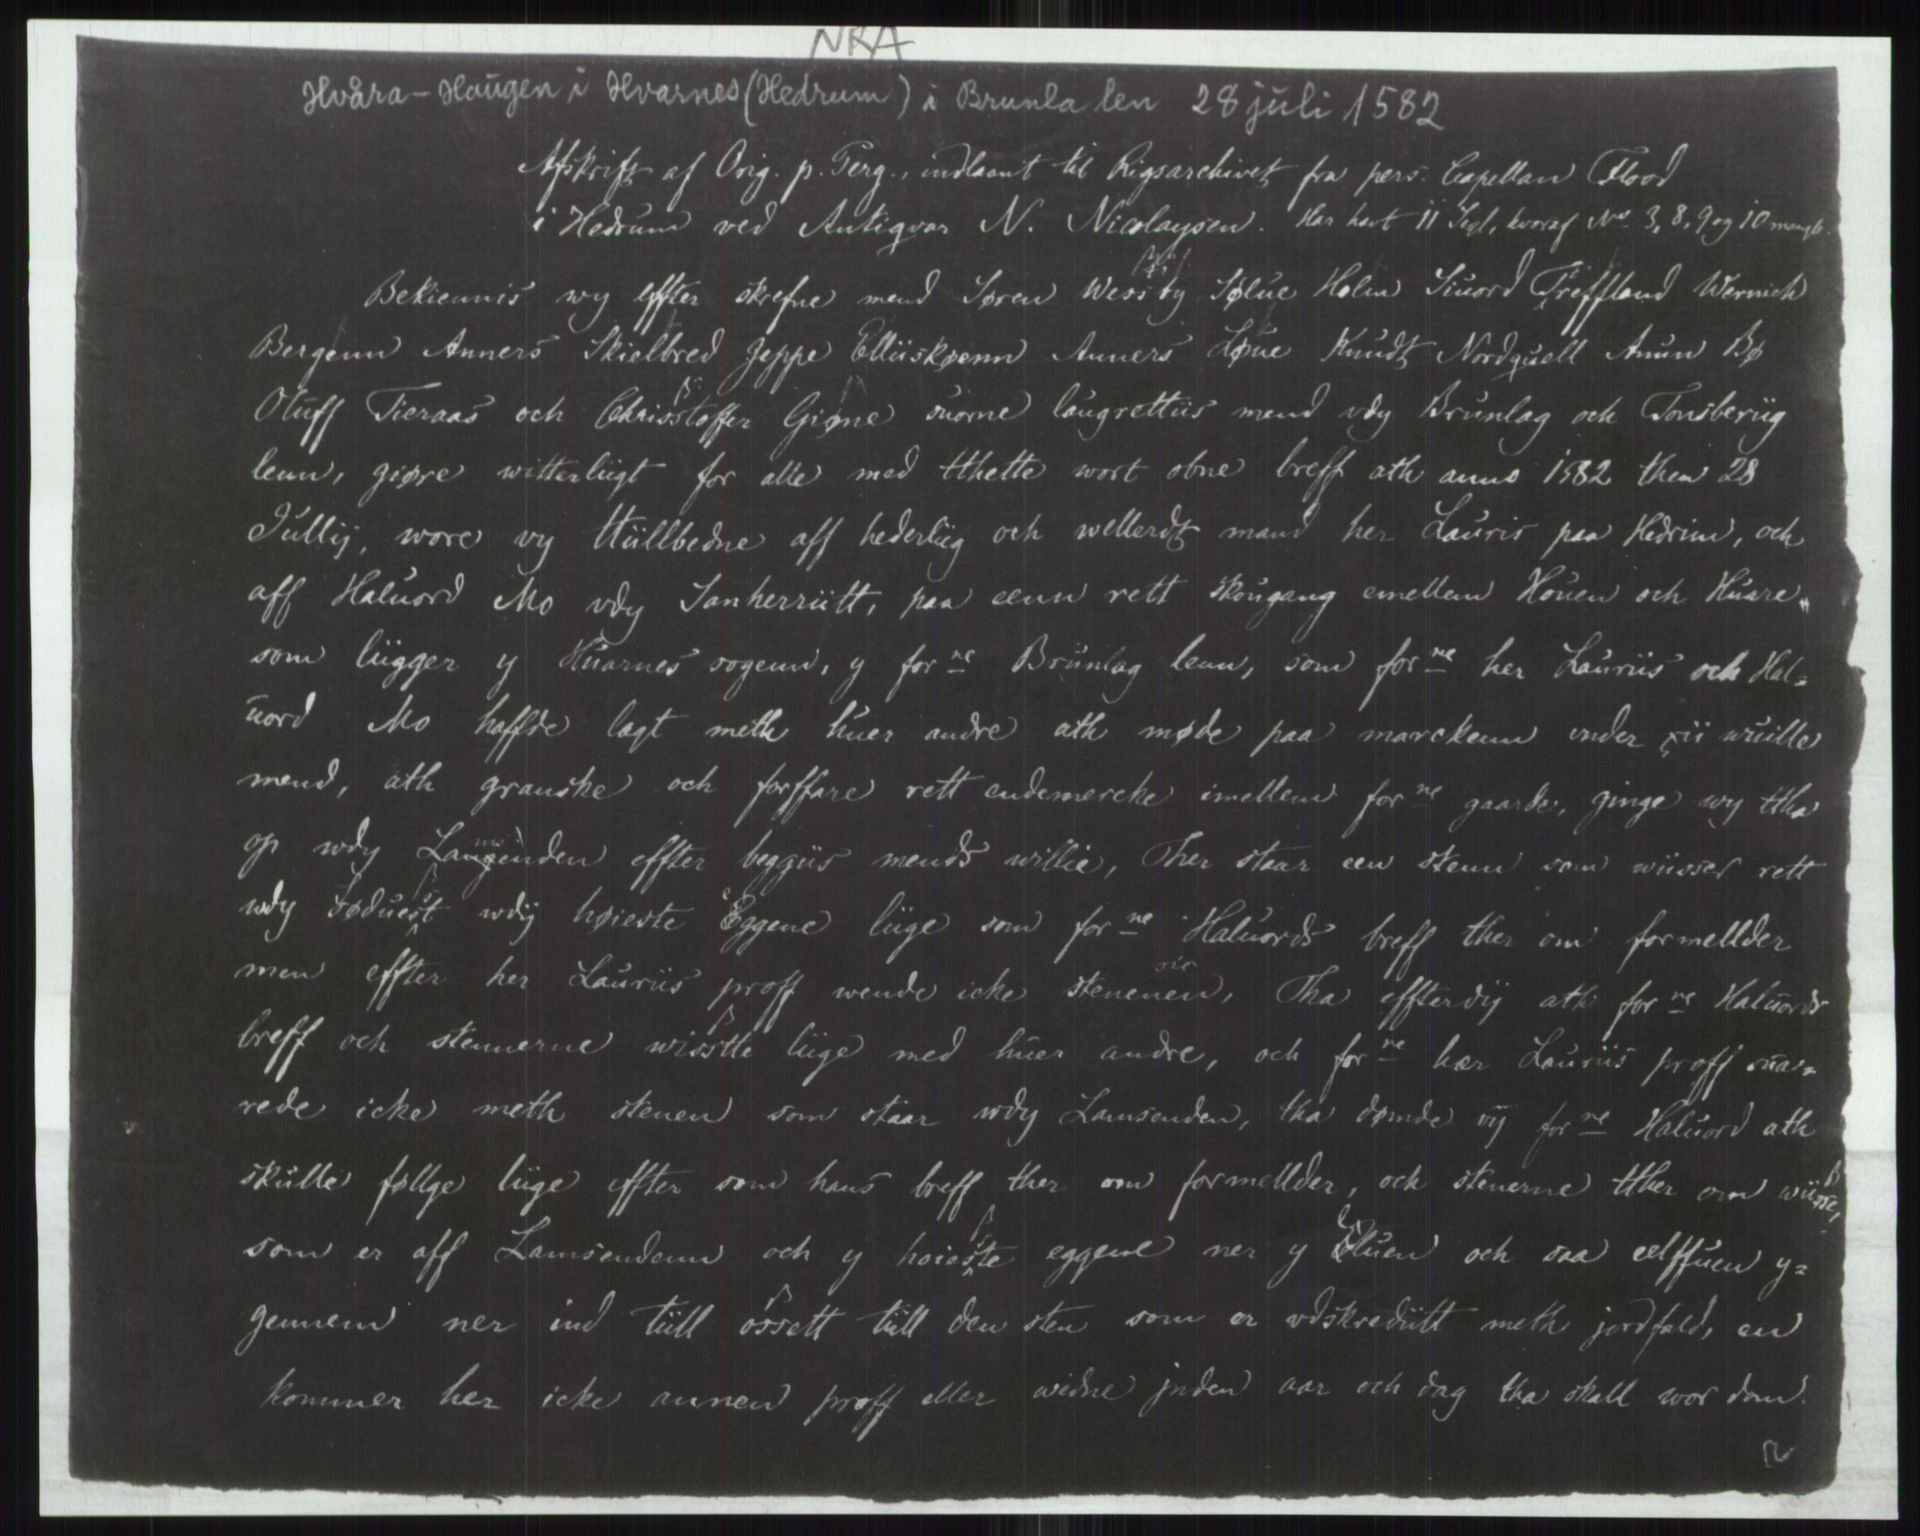 NRA
Hvåra - Haugen i Hvarnes (Hedrum) i Brunla len 28 juli 1582
Afskrift af Orig. p. Perg., indlaant til Rigsarchivet fra pers. Capellan Flood
i Hedrum ved Antiqvar N. Nicolaysen. Har havt 11 Segl, hvoraf No 3, 8, 9 og 10 mangle.
Bekiennis wy effter skrefne mend Søren Wessby Sølue Holm Siuord Treffland Wernich
Bergenn Anners Skielbred Jeppe Elliskøenn Anners Løue Knudt Nordquell Anun Bø
Oluff Tieraas och Chrisstoffer Giøne suorne laugrettiis mend vdy Brunlag och Tonsberiig
lenn, giøre witterliigt for alle med tthette wort obne breff ath anno 1582 then 28
Jullij, wore wy tiillbedne aff hederliig och wellerdt mand her Lauris paa Hedrim, och
aff Haluord Mo vdy Sanherriitt, paa eenn rett skougang emellem Houen och Huare
som liigger y Huarnes sogenn, y for ne Brunlag lenn, som for ne her Lauriis och Hal=
uord Mo haffde lagt meth huer andre ath møde paa marckenn vnder xii wuille
mend, ath granske och forffare rett endemercke imellem for ne gaarde, ginge wy ttha
op wdy effter beggiis mends willie, Ther staar een stenn som wiisser rett
wdy Søduest wdÿ høieste Eggene liige som for ne Haluords breff ther om formellder
men effter her Lauriis proff wende icke stenenen, Tha effterdij ath for ne Haluords
sic
breff och stennerne wisstte liige med huer andre, och for ne her Lauriis proff suar=
rede icke meth stenen som staar wdy Lamsenden, tha dømde vy for ne Haluord ath
skulle føllge liige effter som hans breff ther om formellder, och stenerne tther om wiisse,
som er aff Lamsendenn och y hoieste eggene ner y och saa elffuen y=
gennem ner ind tiill ossett tiill den sten som er vdskrediitt meth jordfald, en
kommer her icke annen proff eller widne jnden aar och dag tha skall wor dom